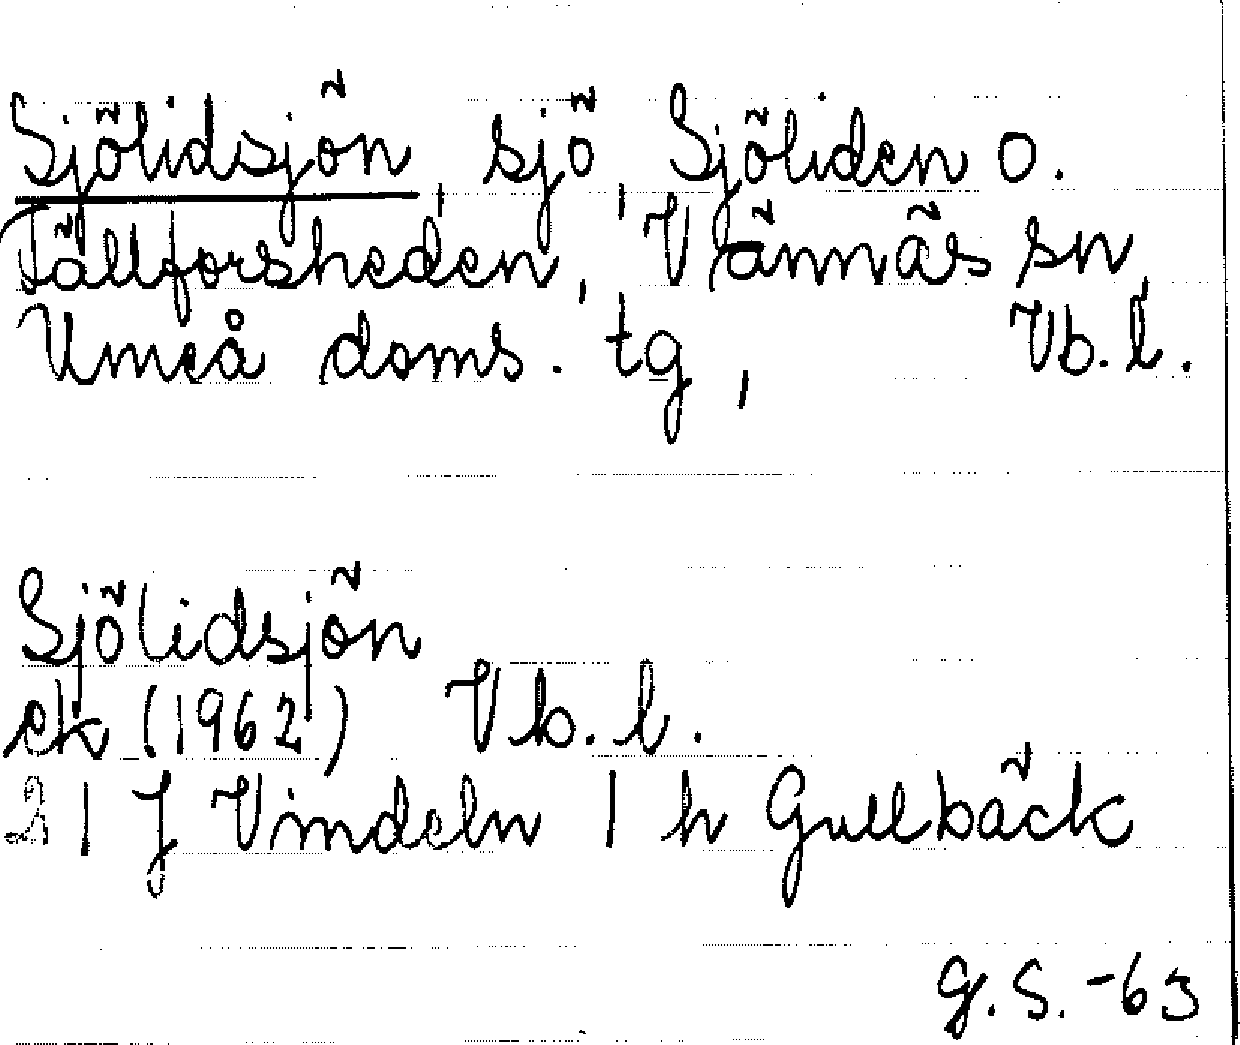 Sjölidsjön, sjö, Sjöliden o.
Tällforsheden, Vännäs sn,
Umeå doms. tg, Vb. l.
Sjölidsjön
ek (1962) Vb. l.
21 J Vindeln 1 h Gullbäck
G. S. -63